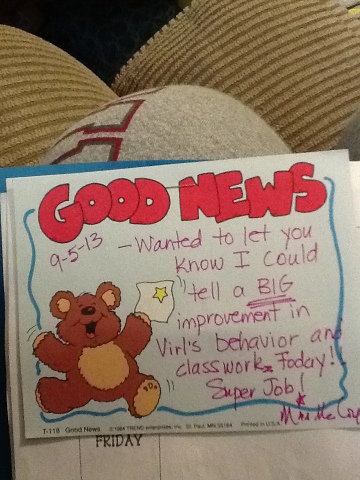 GOOD NEWS
9-5-13 - Wanted to let you
know I could
tell a BIG
improvement in
Virl's behavior and
classwork Today!
Super Job!
Mrs. Mc
T-118 Good News ©1984 TREND enterprises, Inc. St. Paul, MN 55164 Printed in U.S.A.
FRIDAY